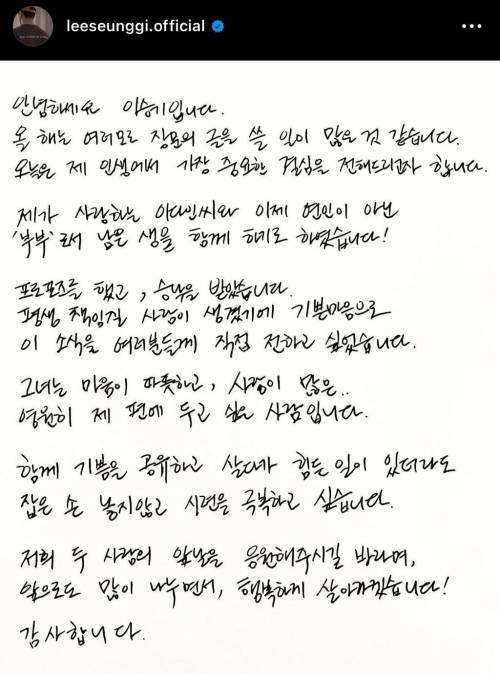 leeseunggi.official
안녕하세요 이승기입니다.
올 해는 여러모로 장문의 글을 쓸 일이 많은 것 같습니다.
오늘은 제 인생에서 가장 중요한 결심을 전해드리고자 합니다.
제가 사랑하는 이다인씨와 이제 연인이 아닌
'부부'로서 남은 생을 함께 하기로 하였습니다!
프로포즈를 했고, 승낙을 받았습니다.
평생 책임질 사람이 생겼기에 기쁜마음으로
이 소식을 여러분들께 직접 전하고 싶었습니다.
그녀는 마음이 따뜻하고, 사랑이 많은..
영원히 제 편에 두고 싶은 사람입니다.
함께 기쁨을 공유하고 살다가 힘든 일이 있더라도
잡은 손 놓지않고 시련을 극복하고 싶습니다.
저희 두 사람의 앞날을 응원해주시길 바라며,
앞으로도 많이 나누면서, 행복하게 살아가겠습니다!
감사합니다.